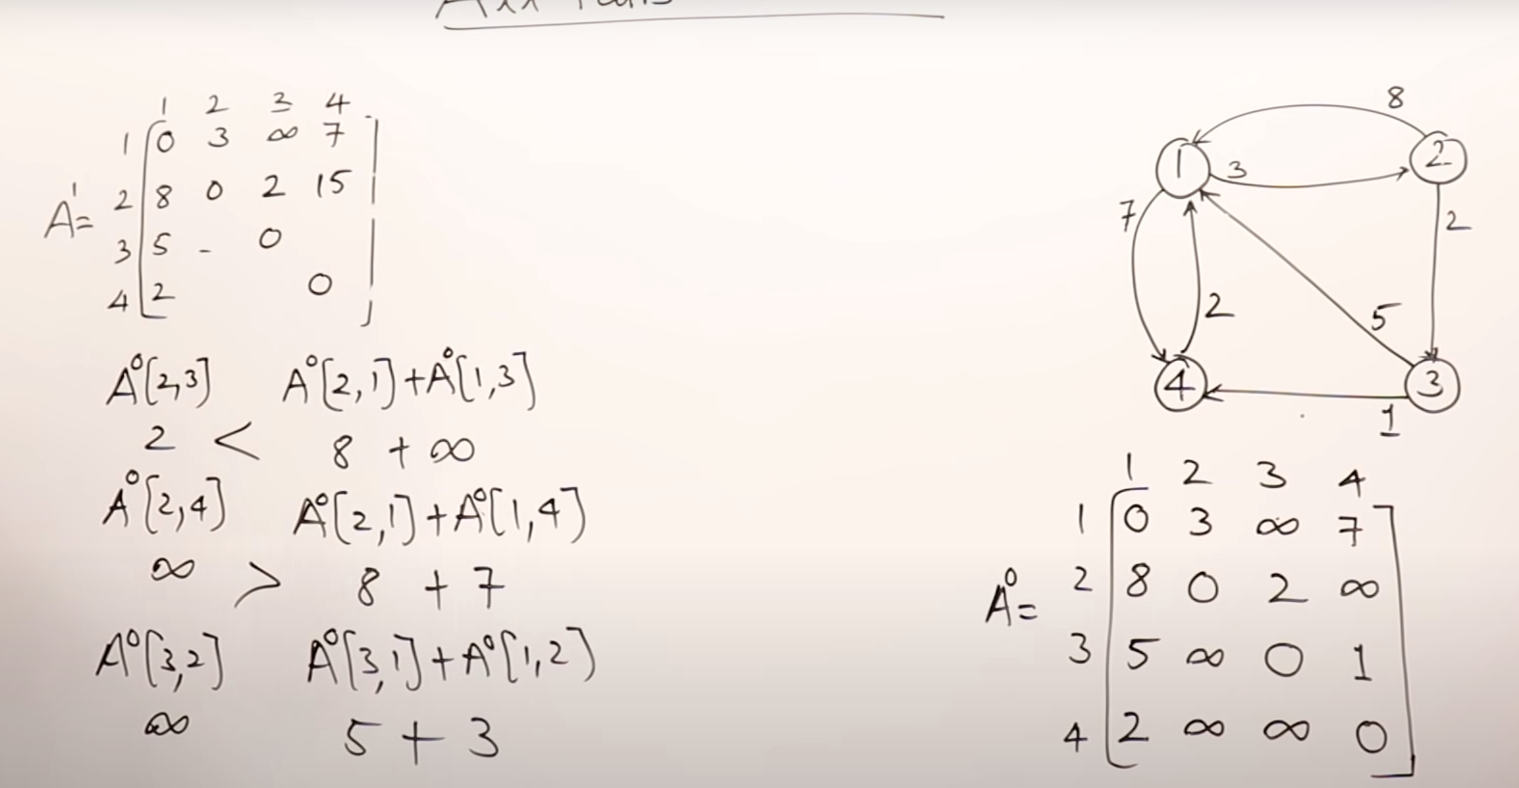 1 2 3 4
1 0 3 ∞ 7
A¹= 2 8 0 2 15
3 5 - 0
4 2 0
A⁰[2,3] A⁰[2,1]+A⁰[1,3]
2 < 8 + ∞
A⁰[2,4] A⁰[2,1]+A⁰[1,4]
∞ > 8 + 7
A⁰[3,2] A⁰[3,1]+A⁰[1,2]
∞ 5 + 3
8
1 3 2
7 2
2 5
4 3
1
1 2 3 4
1 0 3 ∞ 7
A⁰= 2 8 0 2 ∞
3 5 ∞ 0 1
4 2 ∞ ∞ 0